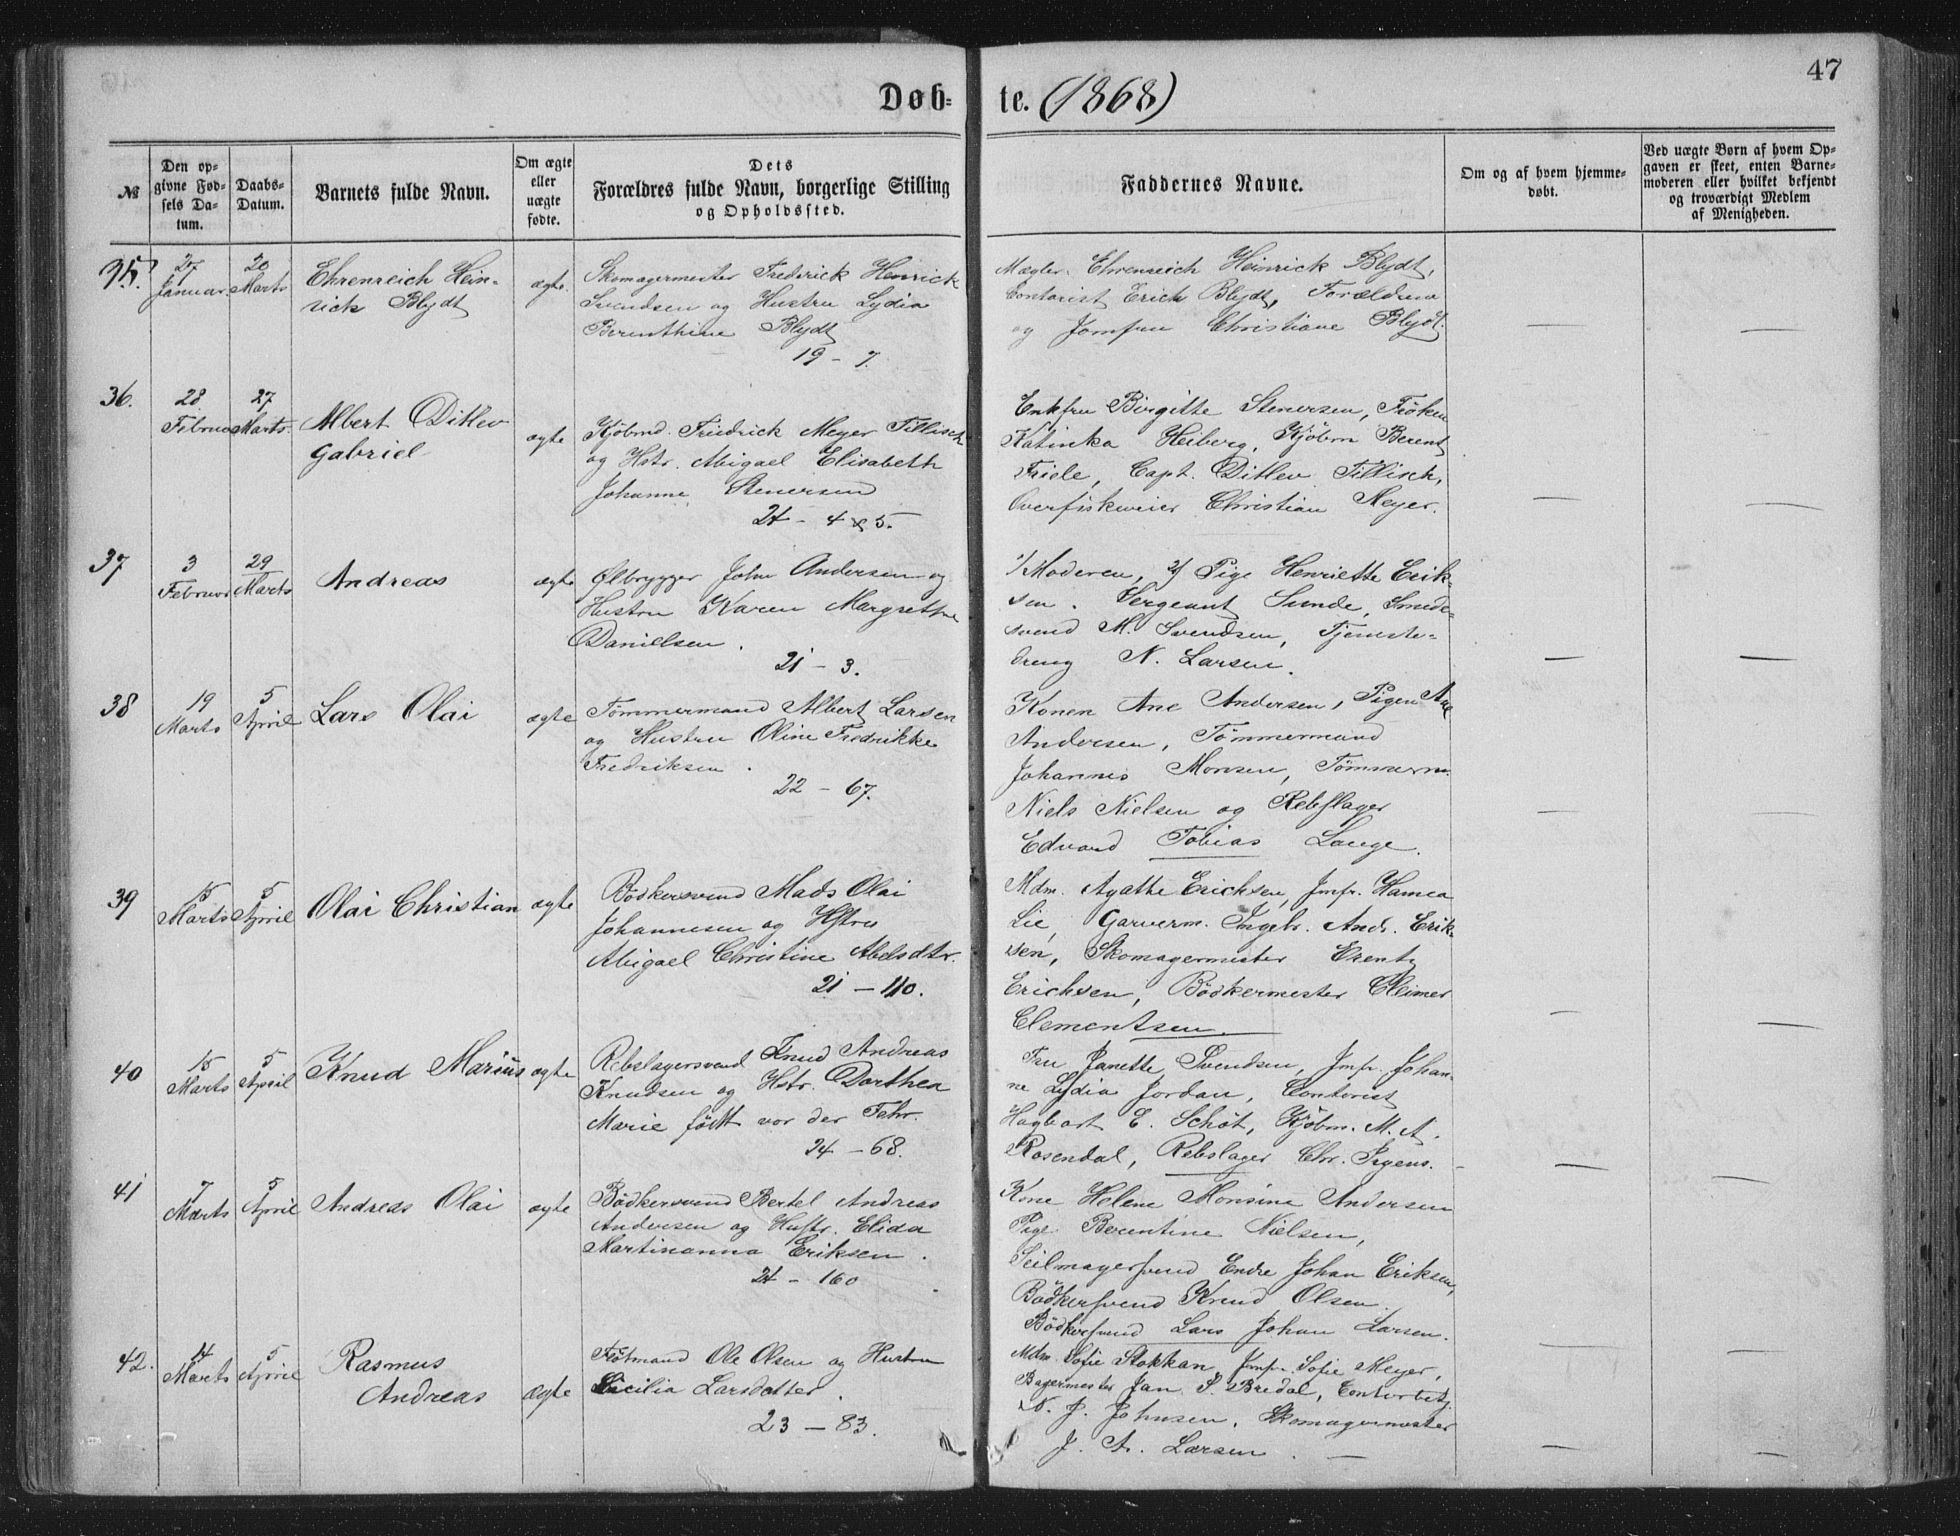 47
Døb- te. (1868)
№
Den opgivne Fødsels Datum.
Daabs-Datum.
Barnets fulde Navn.
Om ægte eller uægte fødte.
Dets Forældres fulde Navn, borgerlige Stilling og Opholdssted.
Faddernes Navne.
Om og af hvem hjemmedøbt.
Ved uægte Børn af hvem Opgaven er skeet, enten Barnemoderen eller hvilket bekjendt og troværdigt Medlem af Menigheden.
35.
27 Januar.
20 Marts
Ehrenreich Hein-
rich Blydt
ægte.
Skomagermester Frederick Henrick
Svendsen og Hustru Lydia
Berenthine Blydt
19 - 7.
Mægler Ehrenreich Heinrick Blydt,
Contorist Erich Blydt, Forældrene
og Jomfru Christiane Blydt.
36.
28 Februar
27 Marts.
Albert Ditlev
Gabriel
ægte
Kjöbmd. Friedrick Meyer Tillisch
og Hstr. Abigael Elisabeth
Johanne Stenersen
24 - 4 & 5.
Enkfru Birgitte Stenersen, Fröken
Katinka Heiberg, Kjöbm Berent
Friele, Capt. Ditlev Tillisch,
Overfiskveier Christian Meyer.
37
3 Februar
29 Marts
Andreas
ægte
Ølbrygger John Andersen og
Hustru Karen Margrethe
Daniellsen.
21 - 3.
1/ Moderen, 2/ Pige Henriette Erik-
sen. Sergeant Sunde, Smede-
svend M. Svendsen, Tjeneste-
dreng N. Larsen.
38
19 Marts
5 April
Lars Olai
ægte
Tömmermand Albert Larsen
og Hustru Oline Fredrikke
Fredriksen.
22 - 67.
Konen Ane Andersen, Pigen Ane
Andersen, Tömmermand
Johannes Monsen, Tömmerm.
Niels Nielsen og Rebslager
Edvard Tobias Lange.
39
15 Marts
5 April
Olai Christian
ægte
Bödkersvend Mads Olai
Johannesen og Hstru
Abigael Christine Abelsdtr.
21 - 110.
Mdm. Agathe Erichsen, Jmfr. Hanna
Lie, Garverm. Ingebr. Andr. Erik-
sen, Skomagermester Erentz
Erichsen, Bödkermester Cleimer
Clementsen.
40
15 Marts
5 April
Knud Marius
ægte
Rebslagersvend Knud Andreas
Knudsen og Hstr. Dorthea
Marie födt vor der Fehr.
24 - 68.
Fru Janette Svendsen, Jmfr. Johan-
ne Lydia Jordan, Contorist
Hagbart E. Schöt, Kjöbm. M. A.
Rosendal, Rebslager Chr. Irgens.
41
7 Marts
5 April
Andreas Olai
ægte
Bödkersvend Bertel Andreas
Andersen og Hustr. Elida
Martinanna Eriksen.
24 - 160
Kone Helene Monsine Andersen
Pige Berentine Nielsen,
Seilmagersvend Endre Johan Eriksen,
Bödkersvend Knud Olsen
Bödkersvend Lars Johan Larsen.
42.
14 Marts
5 April
Rasmus
Andreas
ægte
Fötmand Ole Olsen og Hustru
Secilia Larsdatter.
23 - 83.
Mdm. Sofie Stokkan, Jmfr. Sofie Meyer,
Bagermester Jan S. Bredal, Contorbetj.
N. J. Johnsen, Skomagermester
J. A. Larsen.